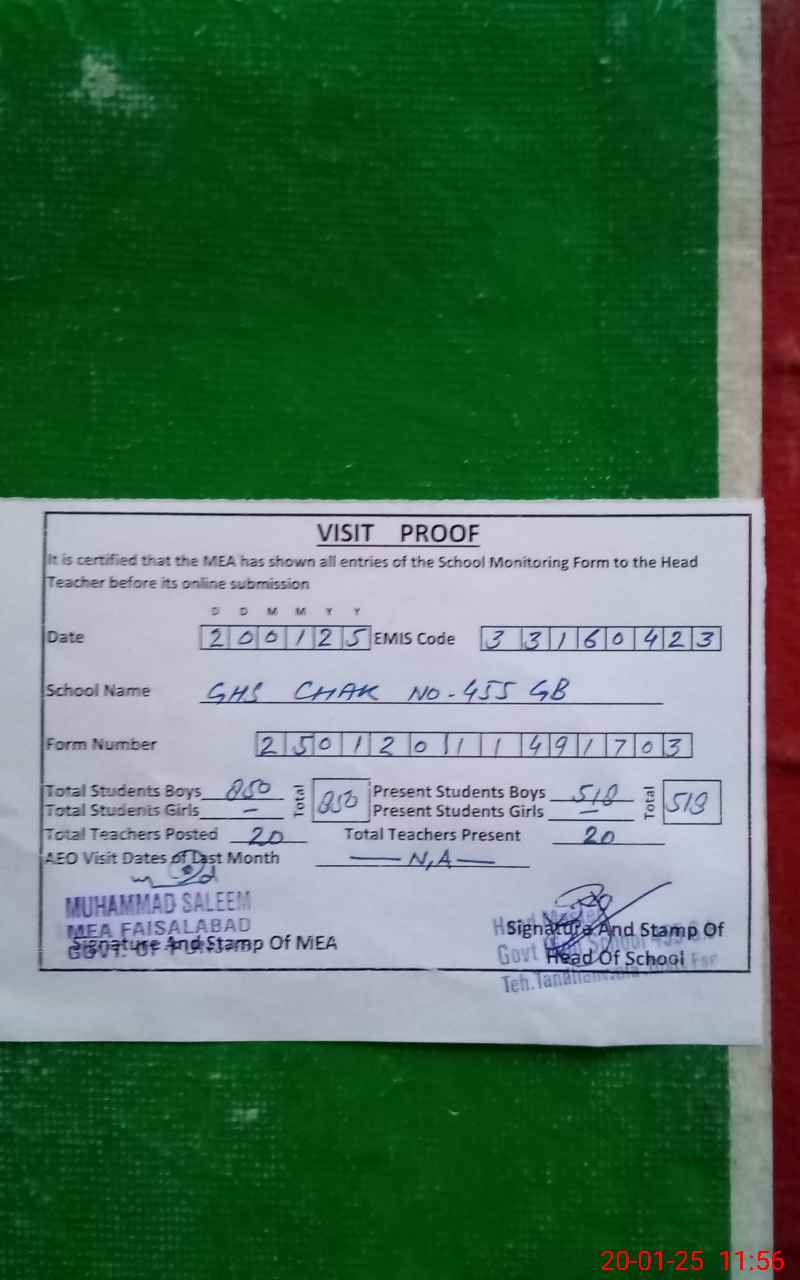 VISIT PROOF
It is certified that the MEA has shown all entries of the School Monitoring Form to the Head
Teacher before its online submission
D D M M Y Y
Date 200125 EMIS Code 33160423
School Name GHS CHAK NO-455 GB
Form Number 250120111491703
Total Students Boys 850 Total 850 Present Students Boys 518 Total 518
Total Students Girls – Present Students Girls –
Total Teachers Posted 20 Total Teachers Present 20
AEO Visit Dates of Last Month — N,A —
MUHAMMAD SALEEM
MEA FAISALABAD
GOVT. OF
Signature And Stamp Of MEA
Head Master
Signature And Stamp Of
Govt High School 455
Head Of School
Teh.
20-01-25 11:56